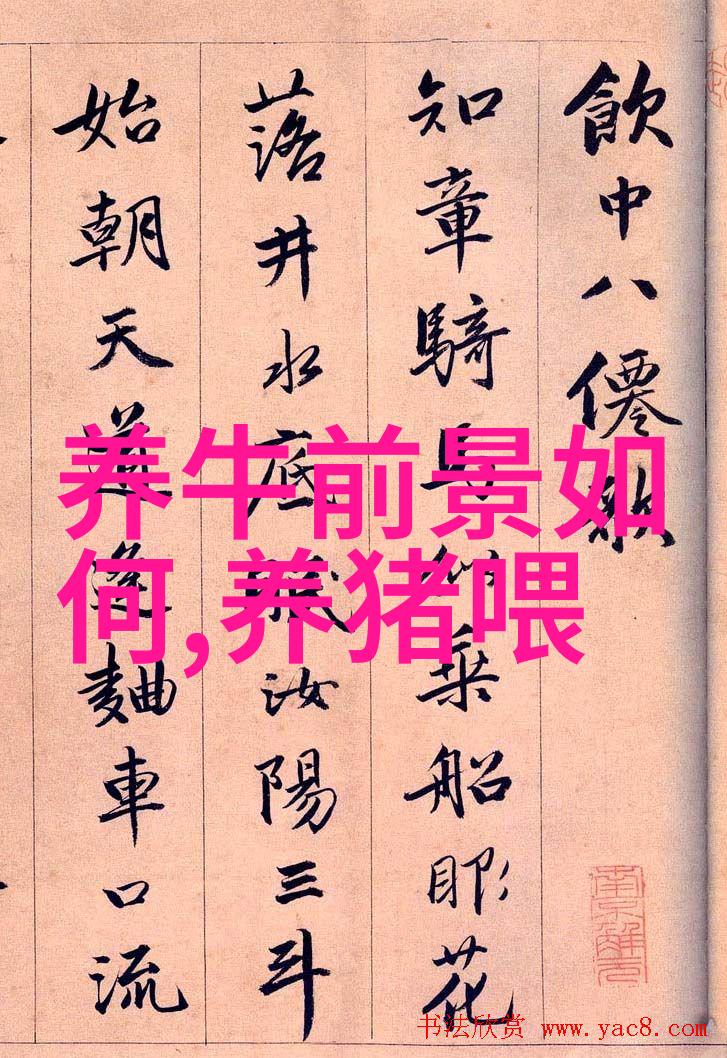 飲中八僊歌
知章騎馬似乘船眼花
落井水底眠汝陽三斗
始朝天道逢麯車口流
养牛前景如
何,养猪喂
南京解元
书法欣赏 www.yac8.com